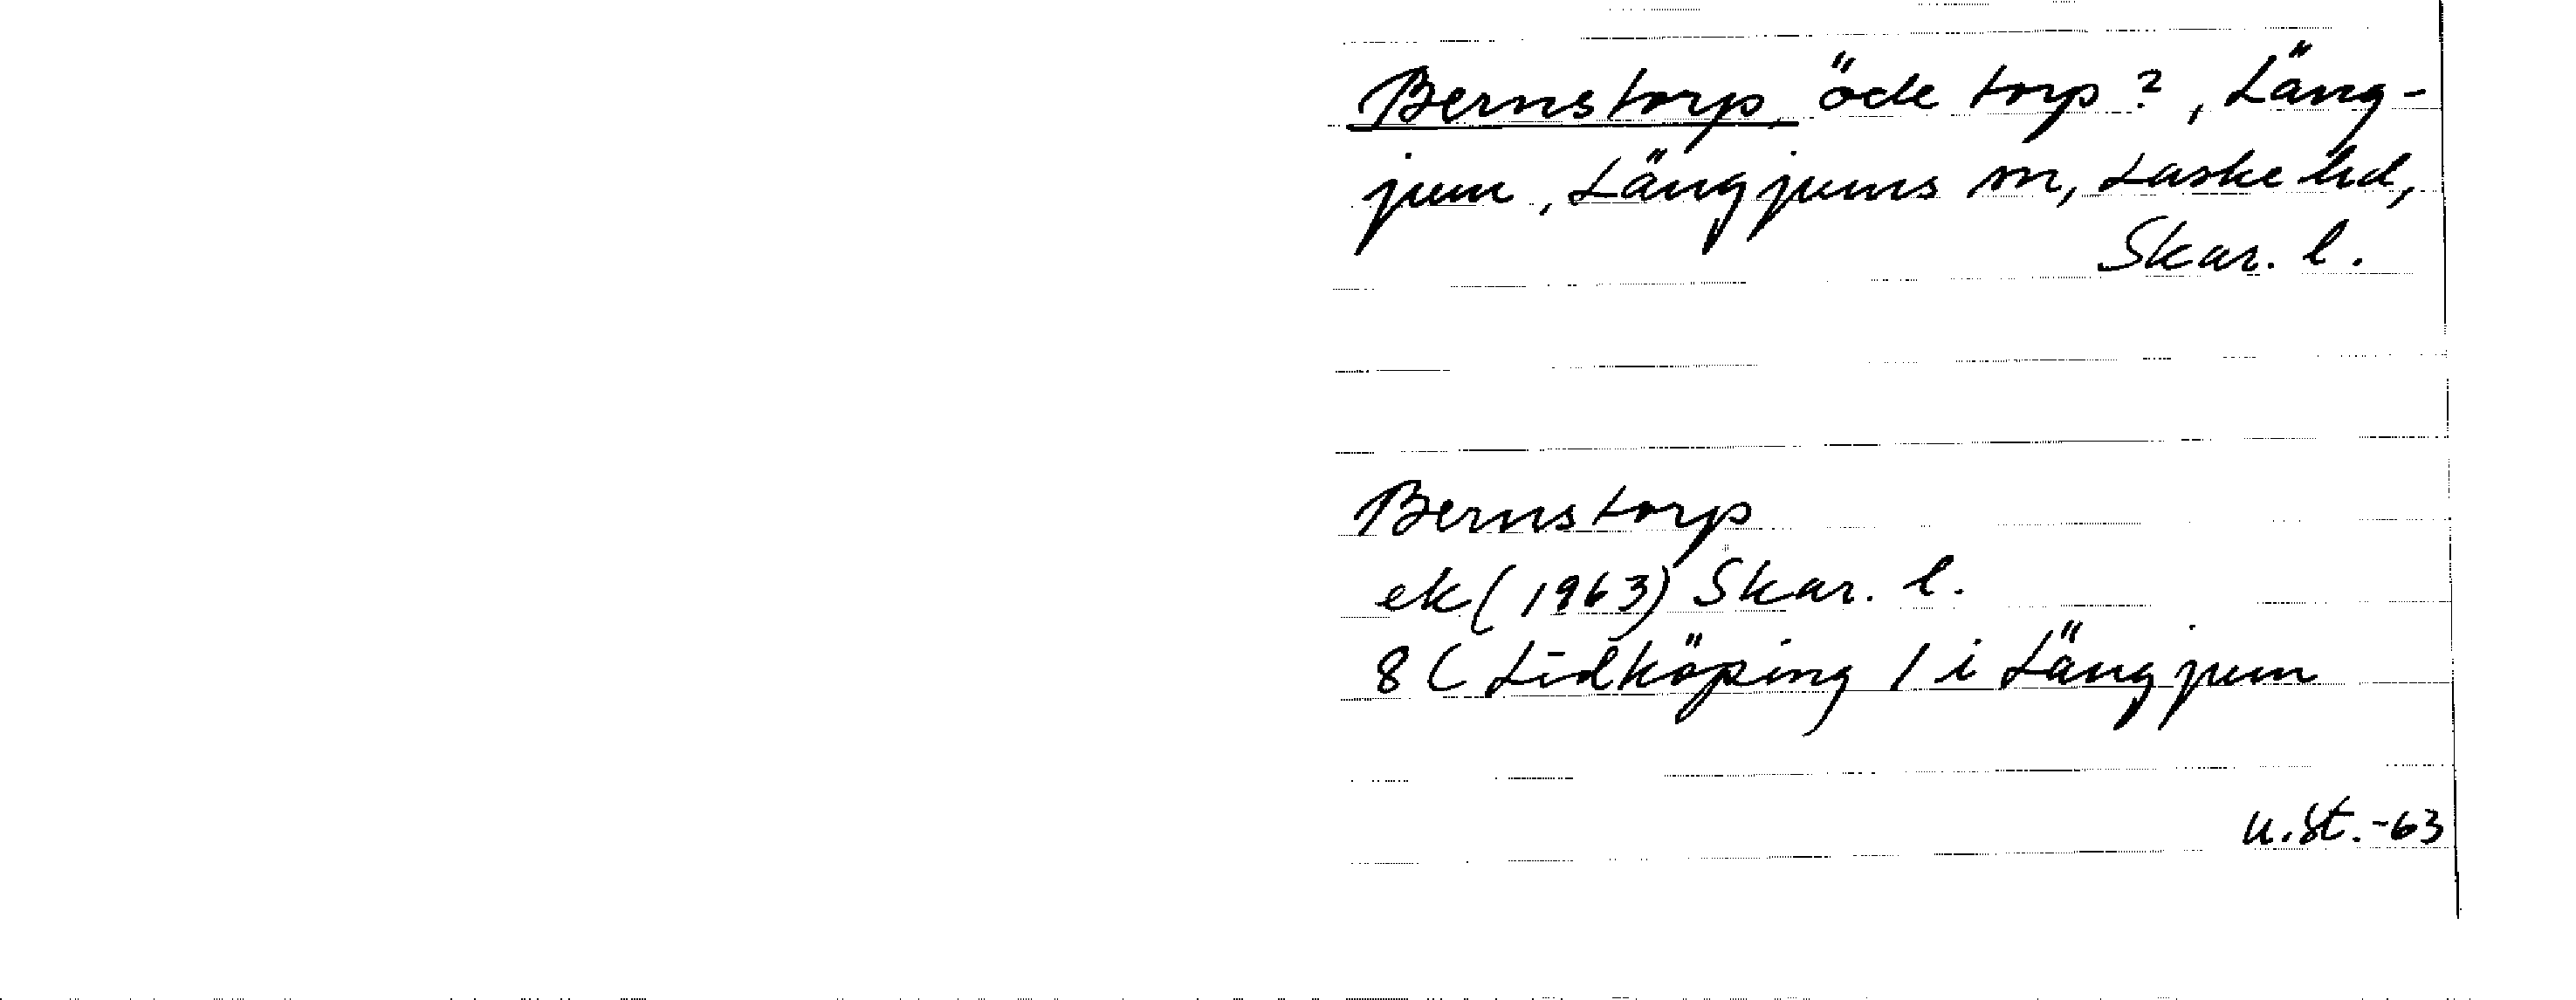 Bernstorp, öde torp?, Läng-
jum, Längjums sn, Laske hd,
Skar. l.
Bernstorp
ek (1963) Skar. l.
8 C Lidköping / i Längjum
u.st.-63